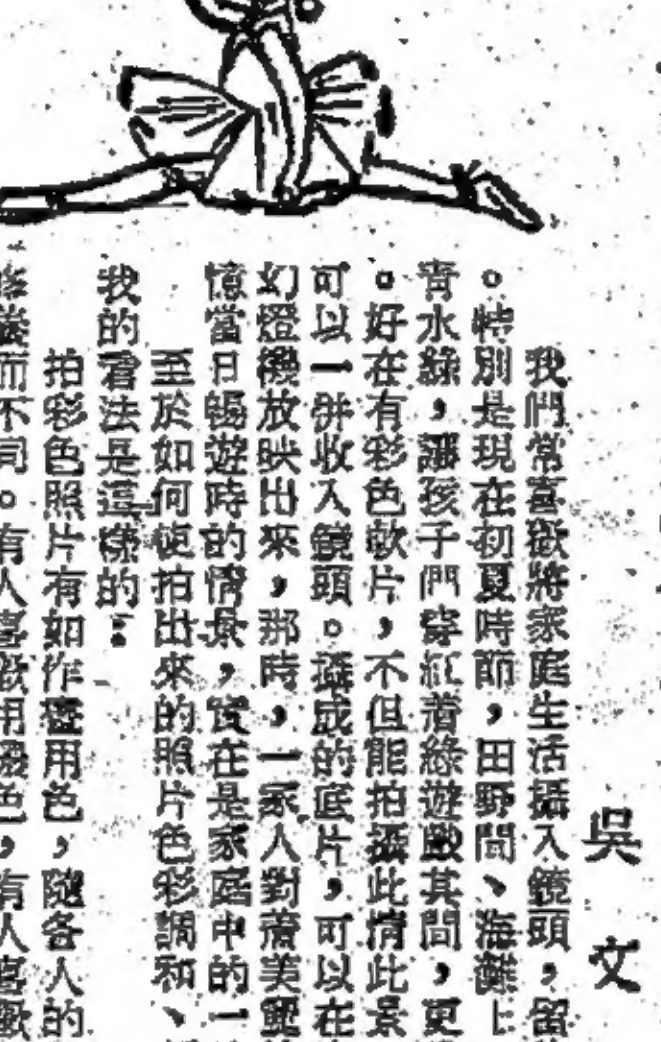 吳文
我們常喜歡將家庭生活攝入鏡頭，留
。特別是現在初夏時節，田野間、海灘上
青水綠，讓孩子們穿紅着綠遊戲其間，更
。好在有彩色軟片，不但能拍攝此情此景
可以一併收入鏡頭。攝成的底片，可以在
幻燈機放映出來，那時，一家人對着美麗
憶當日暢遊時的情景，實在是家庭中的一
至於如何使拍出來的照片色彩調和、
我的看法是這樣的：
拍彩色照片有如作畫用色，隨各人的
而不同。有人喜歡用濃色，有人喜歡